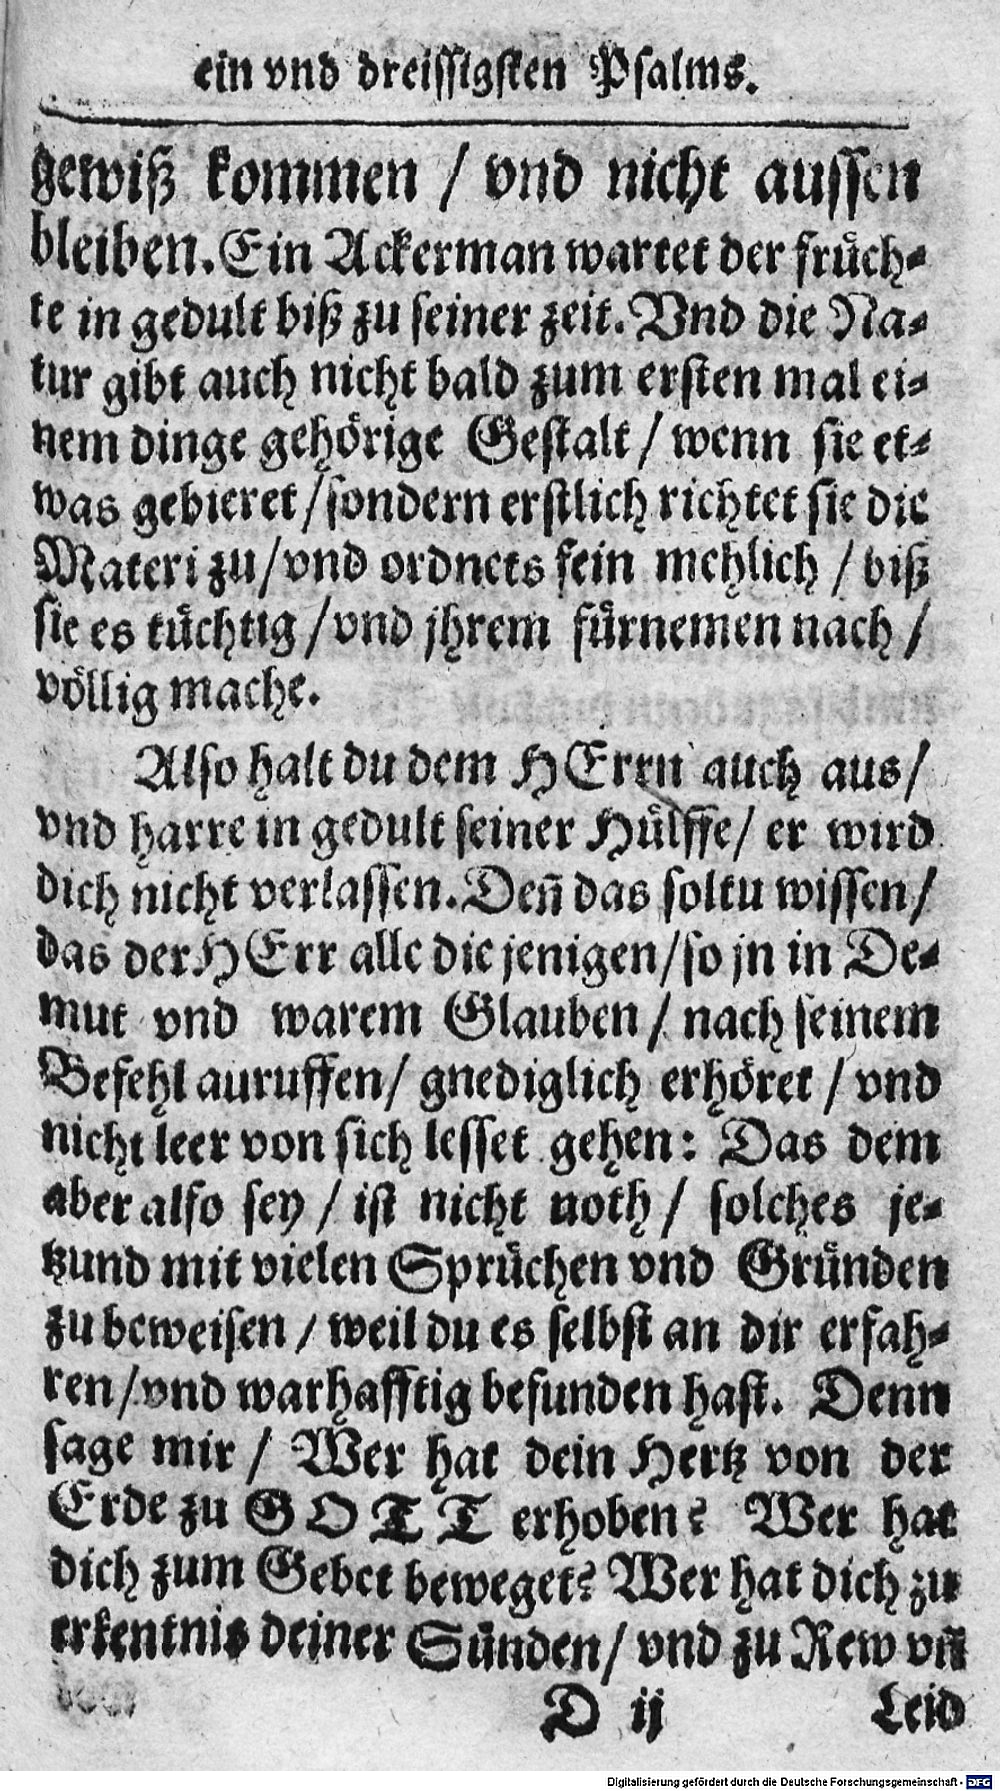 ein vnd dreissigsten Psalms.
gewiß kommen / vnd nicht aussen
bleiben. Ein Ackerman wartet der früch⸗
te in gedult biß zu seiner zeit. Vnd die Na⸗
tur gibt auch nicht bald zum ersten mal ei⸗
nem dinge gehörige Gestalt / wenn sie et⸗
was gebieret / sondern erstlich richtet sie die
Materi zu / vnd ordnets fein mehlich / biß
sie es tüchtig / vnd jhrem fürnemen nach /
völlig mache.
Also halt du dem HErrn auch aus /
vnd harre in gedult seiner Hülffe / er wird
dich nicht verlassen. Deñ das soltu wissen /
das der HErr alle die jenigen / so jn in De⸗
mut vnd warem Glauben / nach seinem
Befehl auruffen / gnediglich erhöret / vnd
nicht leer von sich lesset gehen: Das dem
aber also sey / ist nicht noth / solches je⸗
tzund mit vielen Sprüchen vnd Gründen
zu beweisen / weil du es selbst an dir erfah⸗
ren / vnd warhafftig befunden hast. Denn
sage mir / Wer hat dein Hertz von der
Erde zu GOTT erhoben? Wer hat
dich zum Gebet beweget? Wer hat dich zu
erkentnis deiner Sünden / vnd zu Rew vñ
D ij Leid
Digitalisierung gefördert durch die Deutsche Forschungsgemeinschaft - DFG